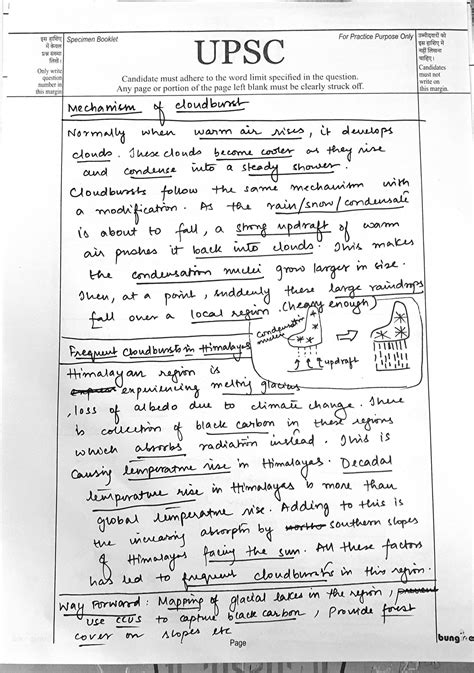 इस हाशिए में केवल प्रश्न संख्या लिखें।
Only write question number in this margin
Specimen Booklet
For Practice Purpose Only
UPSC
Candidate must adhere to the word limit specified in the question.
Any page or portion of the page left blank must be clearly struck off.
उम्मीदवारों को इस हाशिए में नहीं लिखना चाहिए।
Candidates must not write on this margin.
Mechanism of cloudburst
Normally when warm air rises, it develops
clouds. These clouds become cooler as they rise
and condense into a steady shower.
Cloudbursts follow the same mechanism with
a modification. As the rain/snow/condensate
is about to fall, a strong updraft of warm
air pushes it back into clouds. This makes
the condensation nuclei grow larger in size.
Then, at a point, suddenly these large raindrops
fall over a local region. (heavy enough)
condensation
nuclei
updraft
Frequent Cloudbursts in Himalayas
Himalayan region is
experiencing melting glaciers
, loss of albedo due to climate change. There
is collection of black carbon in these regions
which absorbs radiation instead. This is
causing temperature rise in Himalayas. Decadal
temperature rise in Himalayas is more than
global temperature rise. Adding to this is
the increasing absorptn by southern slopes
of Himalayas facing the sun. All these factors
has led to frequent cloudbursts in this region.
Way Forward: Mapping of glacial lakes in the region,
use CCUS to capture black carbon, Provide forest
cover on slopes etc
Page